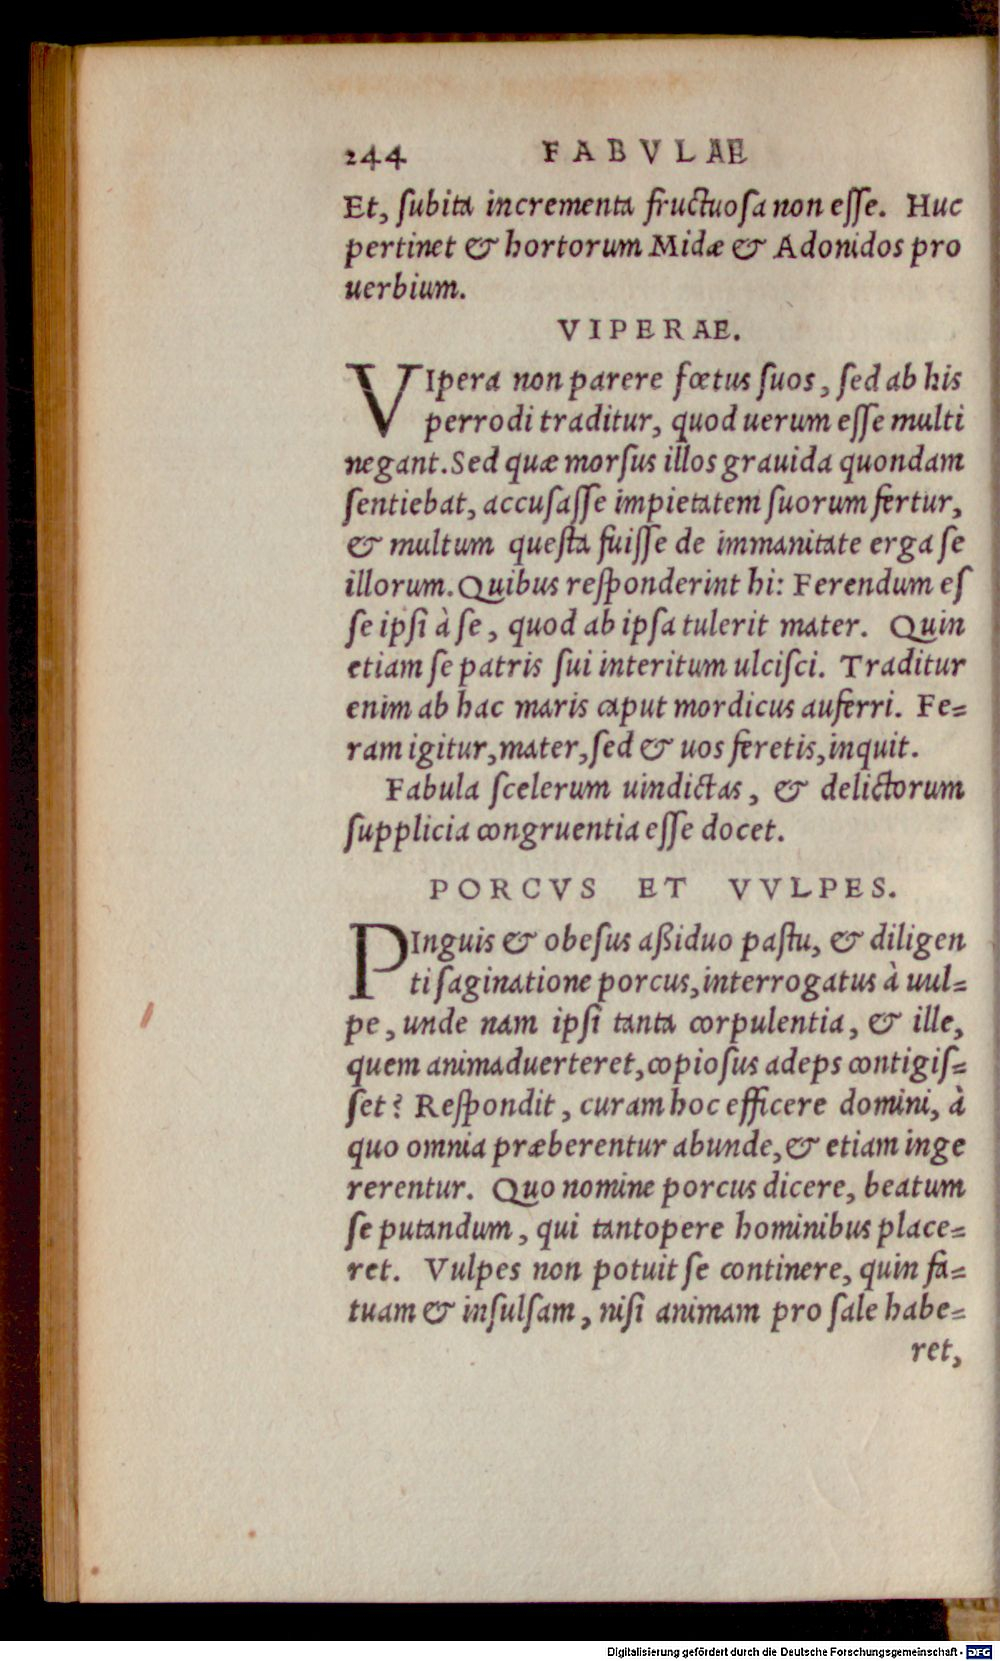 244 FABVLAE
Et, ſubita incrementa fructuoſa non eſſe. Huc
pertinet & hortorum Midæ & Adonidos pro
uerbium.
VIPERAE.
VIpera non parere fœtus ſuos, ſed ab his
perrodi traditur, quod uerum eſſe multi
negant. Sed quæ morſus illos grauida quondam
ſentiebat, accuſaſſe impietatem ſuorum fertur,
& multum queſta fuiſſe de immanitate erga ſe
illorum. Quibus reſponderint hi: Ferendum eſ
ſe ipſi à ſe, quod ab ipſa tulerit mater. Quin
etiam ſe patris ſui interitum ulciſci. Traditur
enim ab hac maris caput mordicus auferri. Fe=
ram igitur, mater, ſed & uos feretis, inquit.
Fabula ſcelerum uindictas, & delictorum
ſupplicia congruentia eſſe docet.
PORCVS ET VVLPES.
PInguis & obeſus aßiduo paſtu, & diligen
ti ſaginatione porcus, interrogatus à uul=
pe, unde nam ipſi tanta corpulentia, & ille,
quem animaduerteret, copioſus adeps contigiſ=
ſet? Reſpondit, curam hoc efficere domini, à
quo omnia præberentur abunde, & etiam inge
rerentur. Quo nomine porcus dicere, beatum
ſe putandum, qui tantopere hominibus place=
ret. Vulpes non potuit ſe continere, quin fa=
tuam & inſulſam, niſi animam pro ſale habe=
ret,
Digitalisierung gefördert durch die Deutsche Forschungsgemeinschaft - DFG